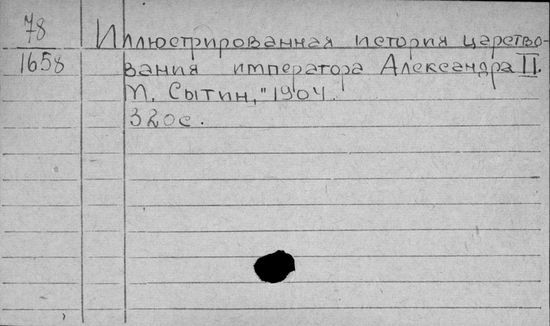 78
1658
Иллюстрированная история царство-
вания императора Александра II.
М. Сытин, "1904.
320с.